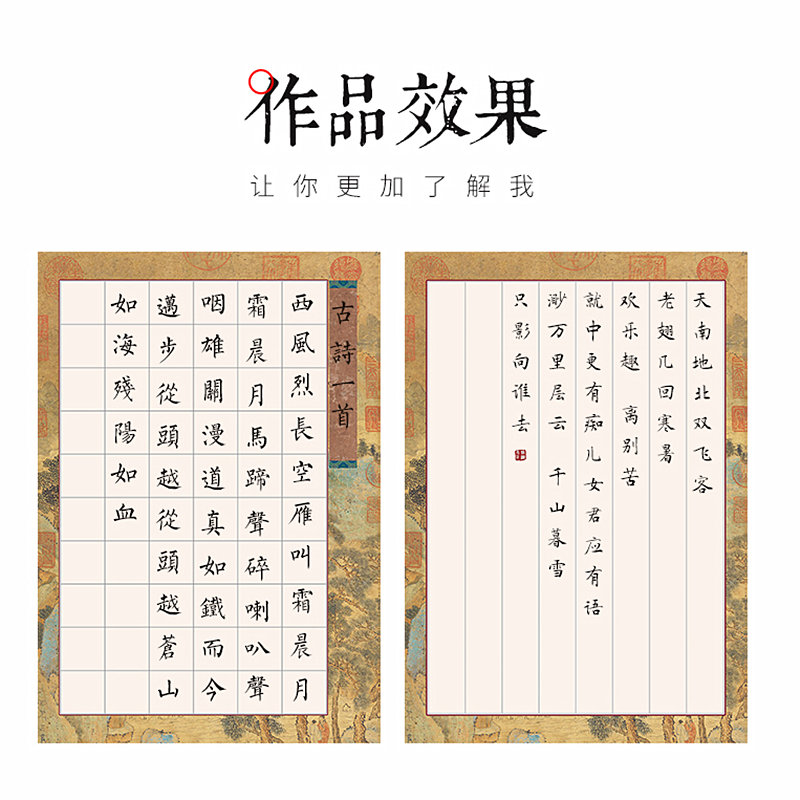 作品效果
让你更加了解我
古詩一首
西風烈長空雁叫霜晨月
霜晨月馬蹄聲碎喇叭聲
咽雄關漫道真如鐵而今
邁步從頭越從頭越蒼山
如海殘陽如血
天南地北双飞客
老翅几回寒暑
欢乐趣 离别苦
就中更有痴儿女君应有语
渺万里层云 千山暮雪
只影向谁去